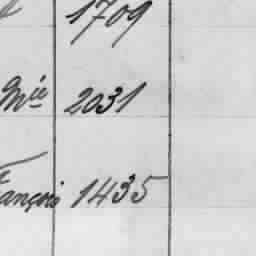 1709
Mie 2031
ançois 1435